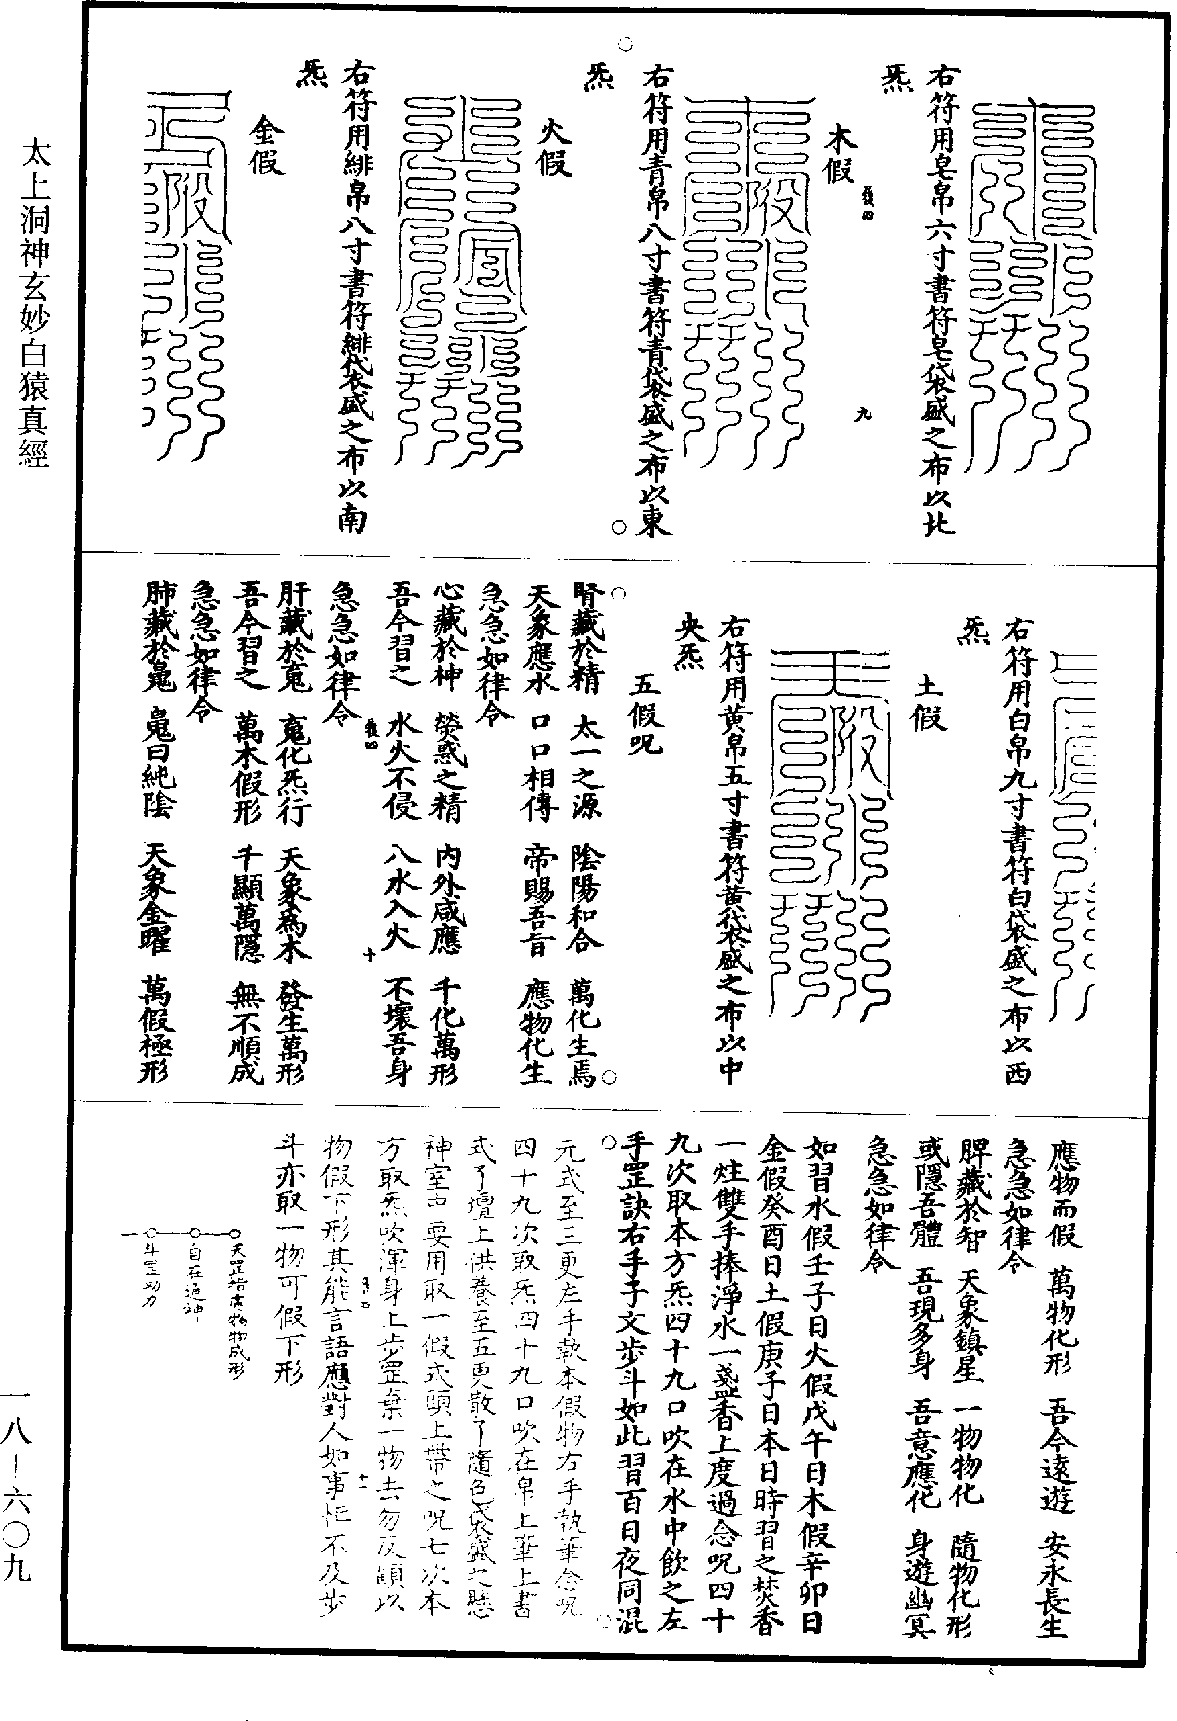 太上洞神玄妙白猿真經
右符用皂帛六寸書符皂袋盛之布以北
炁
木假
九
右符用青帛八寸書符青袋盛之布以東
炁
火假
右符用緋帛八寸書符緋袋盛之布以南
炁
金假
右符用白帛九寸書符白袋盛之布以西
炁
土假
右符用黃帛五寸書符黃袋盛之布以中
央炁
五假呪
腎藏於精 太一之源 陰陽和合 萬化生焉
天象應水 口口相傳 帝賜吾旨 應物化生
急急如律令
心藏於神 熒惑之精 內外咸應 千化萬形
吾今習之 水火不侵 八水入火 不壞吾身
十
急急如律令
肝藏於䰟 䰟化炁行 天象為木 發生萬形
吾今習之 萬木假形 千顯萬隱 無不順成
急急如律令
肺藏於䰟 䰟曰純陰 天象金曜 萬假極形
應物而假 萬物化形 吾今遠遊 安永長生
急急如律令
脾藏於智 天象鎮星 一物物化 隨物化形
或隱吾體 吾現多身 吾意應化 身遊幽冥
急急如律令
如習水假壬子日火假戊午日木假辛卯日
金假癸酉日土假庚子日本日時習之焚香
一炷雙手捧淨水一盞香上度過念呪四十
九次取本方炁四十九口吹在水中飲之左
手罡訣右手子文步斗如此習百日夜同混
元式至三更左手執本假物右手執筆念呪
四十九次取炁四十九口吹在帛上筆上書
式了壇上供養至五更散了隨色袋盛之懸
神室中要用取一假式頭上帶之呪七次本
方取炁吹渾身上步罡棄一物去勿反顧以
物假下形其能言語應對人如事忙不及步
十一
斗亦取一物可假下形
天罡指處物物成形
自在追神
斗罡助力
一八－六〇九